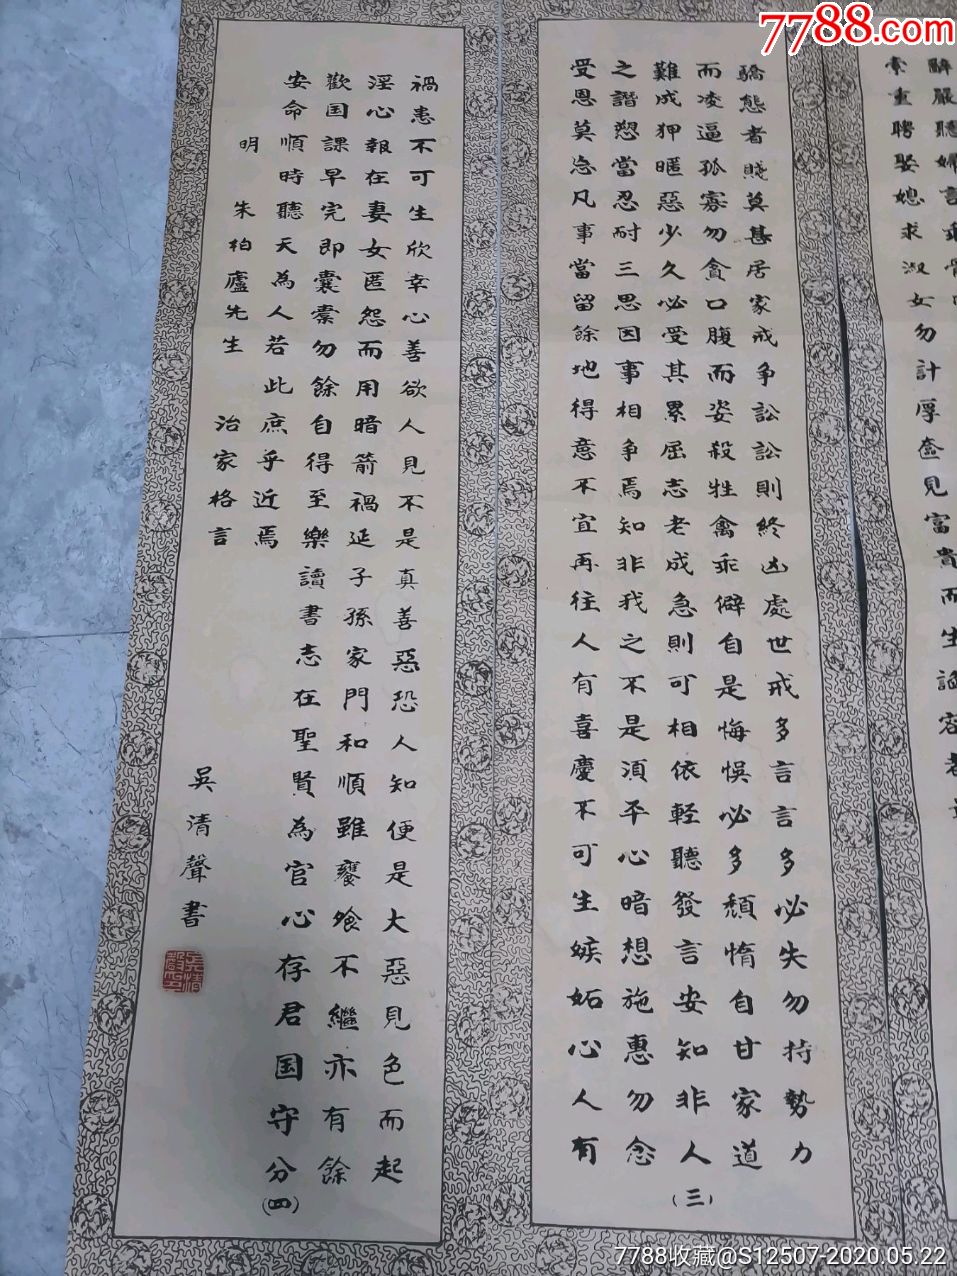 7788.com
辭嚴聽婦言乖骨
索重聘娶媳求淑女勿計厚奩見富貴而生諂容者最
驕態者賤莫甚居家戒争訟訟則終凶處世戒多言言多必失勿持勢力
而凌逼孤寡勿貪口腹而姿殺牲禽乖僻自是悔悞必多頽惰自甘家道
難成狎暱惡少久必受其累屈志老成急則可相依輕聽發言安知非人
之譖愬當忍耐三思因事相争焉知非我之不是須平心暗想施惠勿念
受恩莫忘凡事當留餘地得意不宜再往人有喜慶不可生嫉妬心人有
(三)
禍患不可生欣幸心善欲人見不是真善惡恐人知便是大惡見色而起
淫心報在妻女匿怨而用暗箭禍延子孫家門和順雖饔飧不繼亦有餘
歡国課早完即囊橐勿餘自得至樂讀書志在聖賢為官心存君国守分
安命順時聽天為人若此庶乎近焉
(四)
明 朱柏廬先生 治家格言
吳清聲書
7788收藏@S12507-2020.05.22